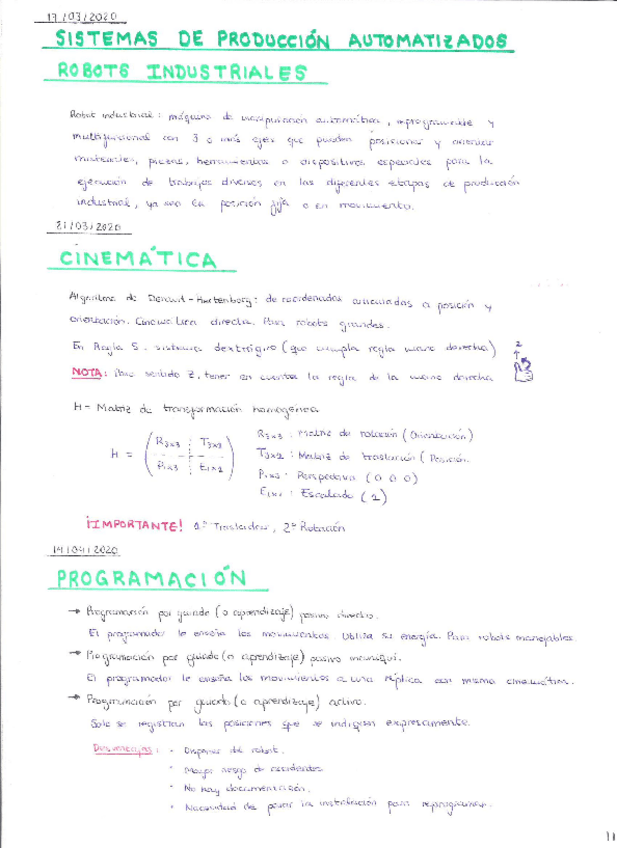 17/03/2020
SISTEMAS DE PRODUCCIÓN AUTOMATIZADOS
ROBOTS INDUSTRIALES
Robot industrial: máquina de manipulación automática, reprogramable y
multifuncional con 3 o más ejes que pueden posicionar y orientar
materiales, piezas, herramientas o dispositivos especiales para la
ejecución de trabajos diversos en las diferentes etapas de producción
industrial, ya sea en posición fija o en movimiento.
21/03/2020
CINEMÁTICA
Algoritmo de Denavit-Hartenberg: de coordenadas articuladas a posición y
orientación. Cinemática directa. Para robots grandes.
En Regla 5. sistema dextrógiro (que cumpla regla mano derecha)
z
NOTA: sentido Z, tener en cuenta la regla de la mano derecha
H = Matriz de transformación homogénea
H = ( R3x3 T3x1
P1x3 E1x1 )
R3x3: Matriz de rotación (Orientación)
: Matriz de traslación (Posición
P1x3: Perspectiva (0 0 0)
E1x1: Escalado (1)
¡IMPORTANTE! 1º Trasladar, 2º Rotación
14/04/2020
PROGRAMACIÓN
→ Programación por guiado (o aprendizaje) pasivo directo.
El programador le enseña los movimientos. Utiliza su energía. Para robots manejables.
→ Programación por guiado (o aprendizaje) pasivo maniquí.
El programador le enseña los movimientos a una réplica con misma cinemática.
→ Programación por guiado (o aprendizaje) activo.
Solo se registran las posiciones que se indiquen expresamente.
Desventajas: · Disponer del robot.
· Mayor riesgo de accidentes
· No hay documentación.
· Necesidad de parar la instalación para reprogramar.